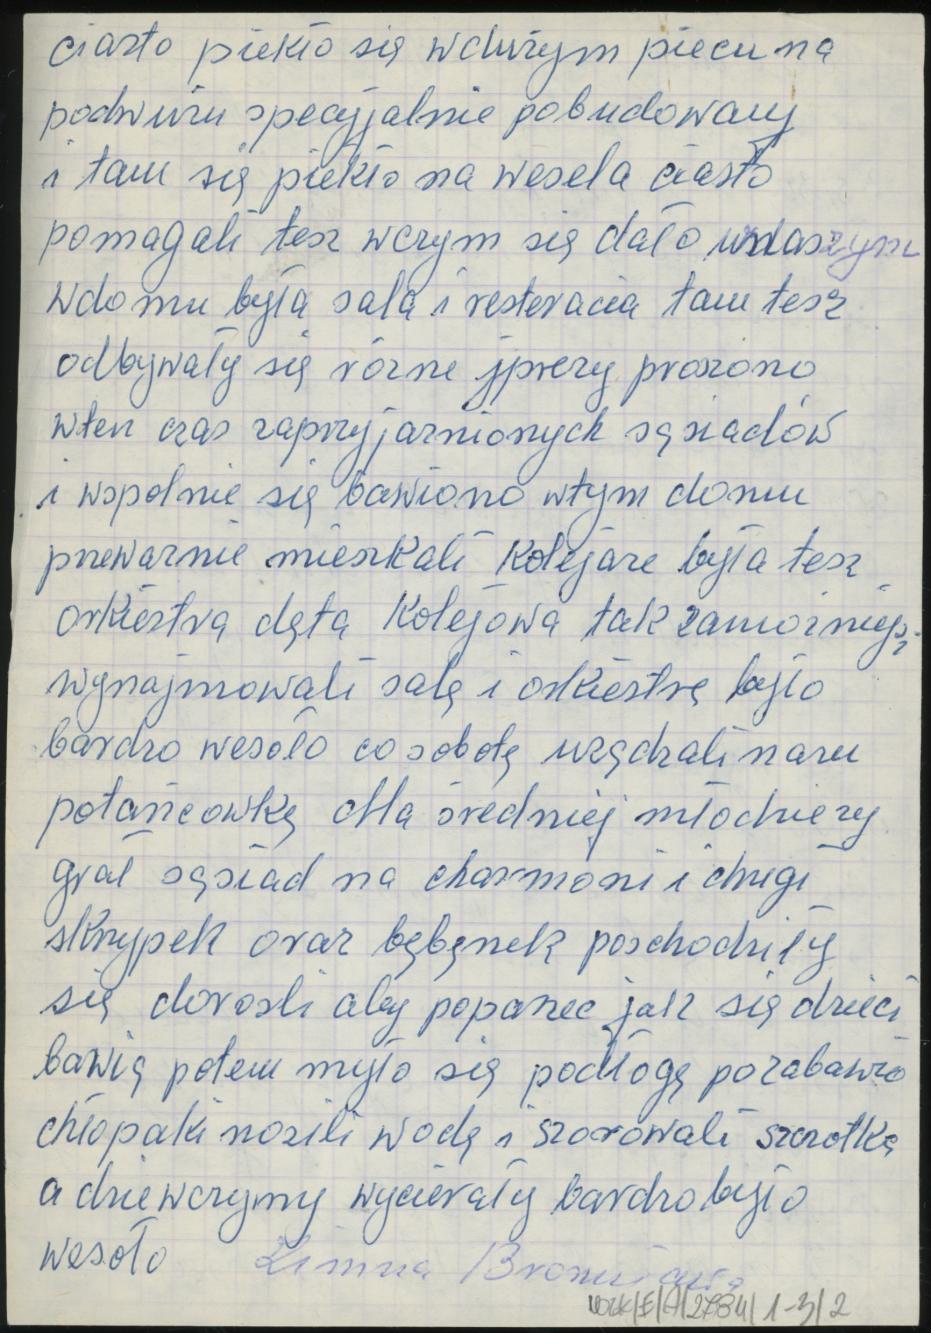 ciasto piekło się wdużym piecu na
podwużu specyjalnie pobudowany
i tam się piekło na wesela ciasto
pomagali tesz wczym się dało wnaszym
wdomu była sala i resteracia tam tesz
odbywały się rózne jprezy proszono
wten czas zaprzyjaznionych sąsiadów
i wspolnie się bawiono wtym domu
przewarznie mieszkali kolejarze była tesz
orkiestra dęta Kolejowa tak zamożniejsi
wynajmowali salę i orkiestrę było
bardzo wesoło co sobotę użądzali nam
potańcowkę dla sredniej młodzierzy
grał sąsiad na charmoni i drugi
skrzypek oraz bębęnek poschodziły
się dorosli aby popatrzec jak się dzieci
bawią potem myło się podłogę pozabawie
chłopaki nosili wodę i szorowali szczotką
a dziewczymy wycierały bardzo było
wesoło Zimna
1-3/2